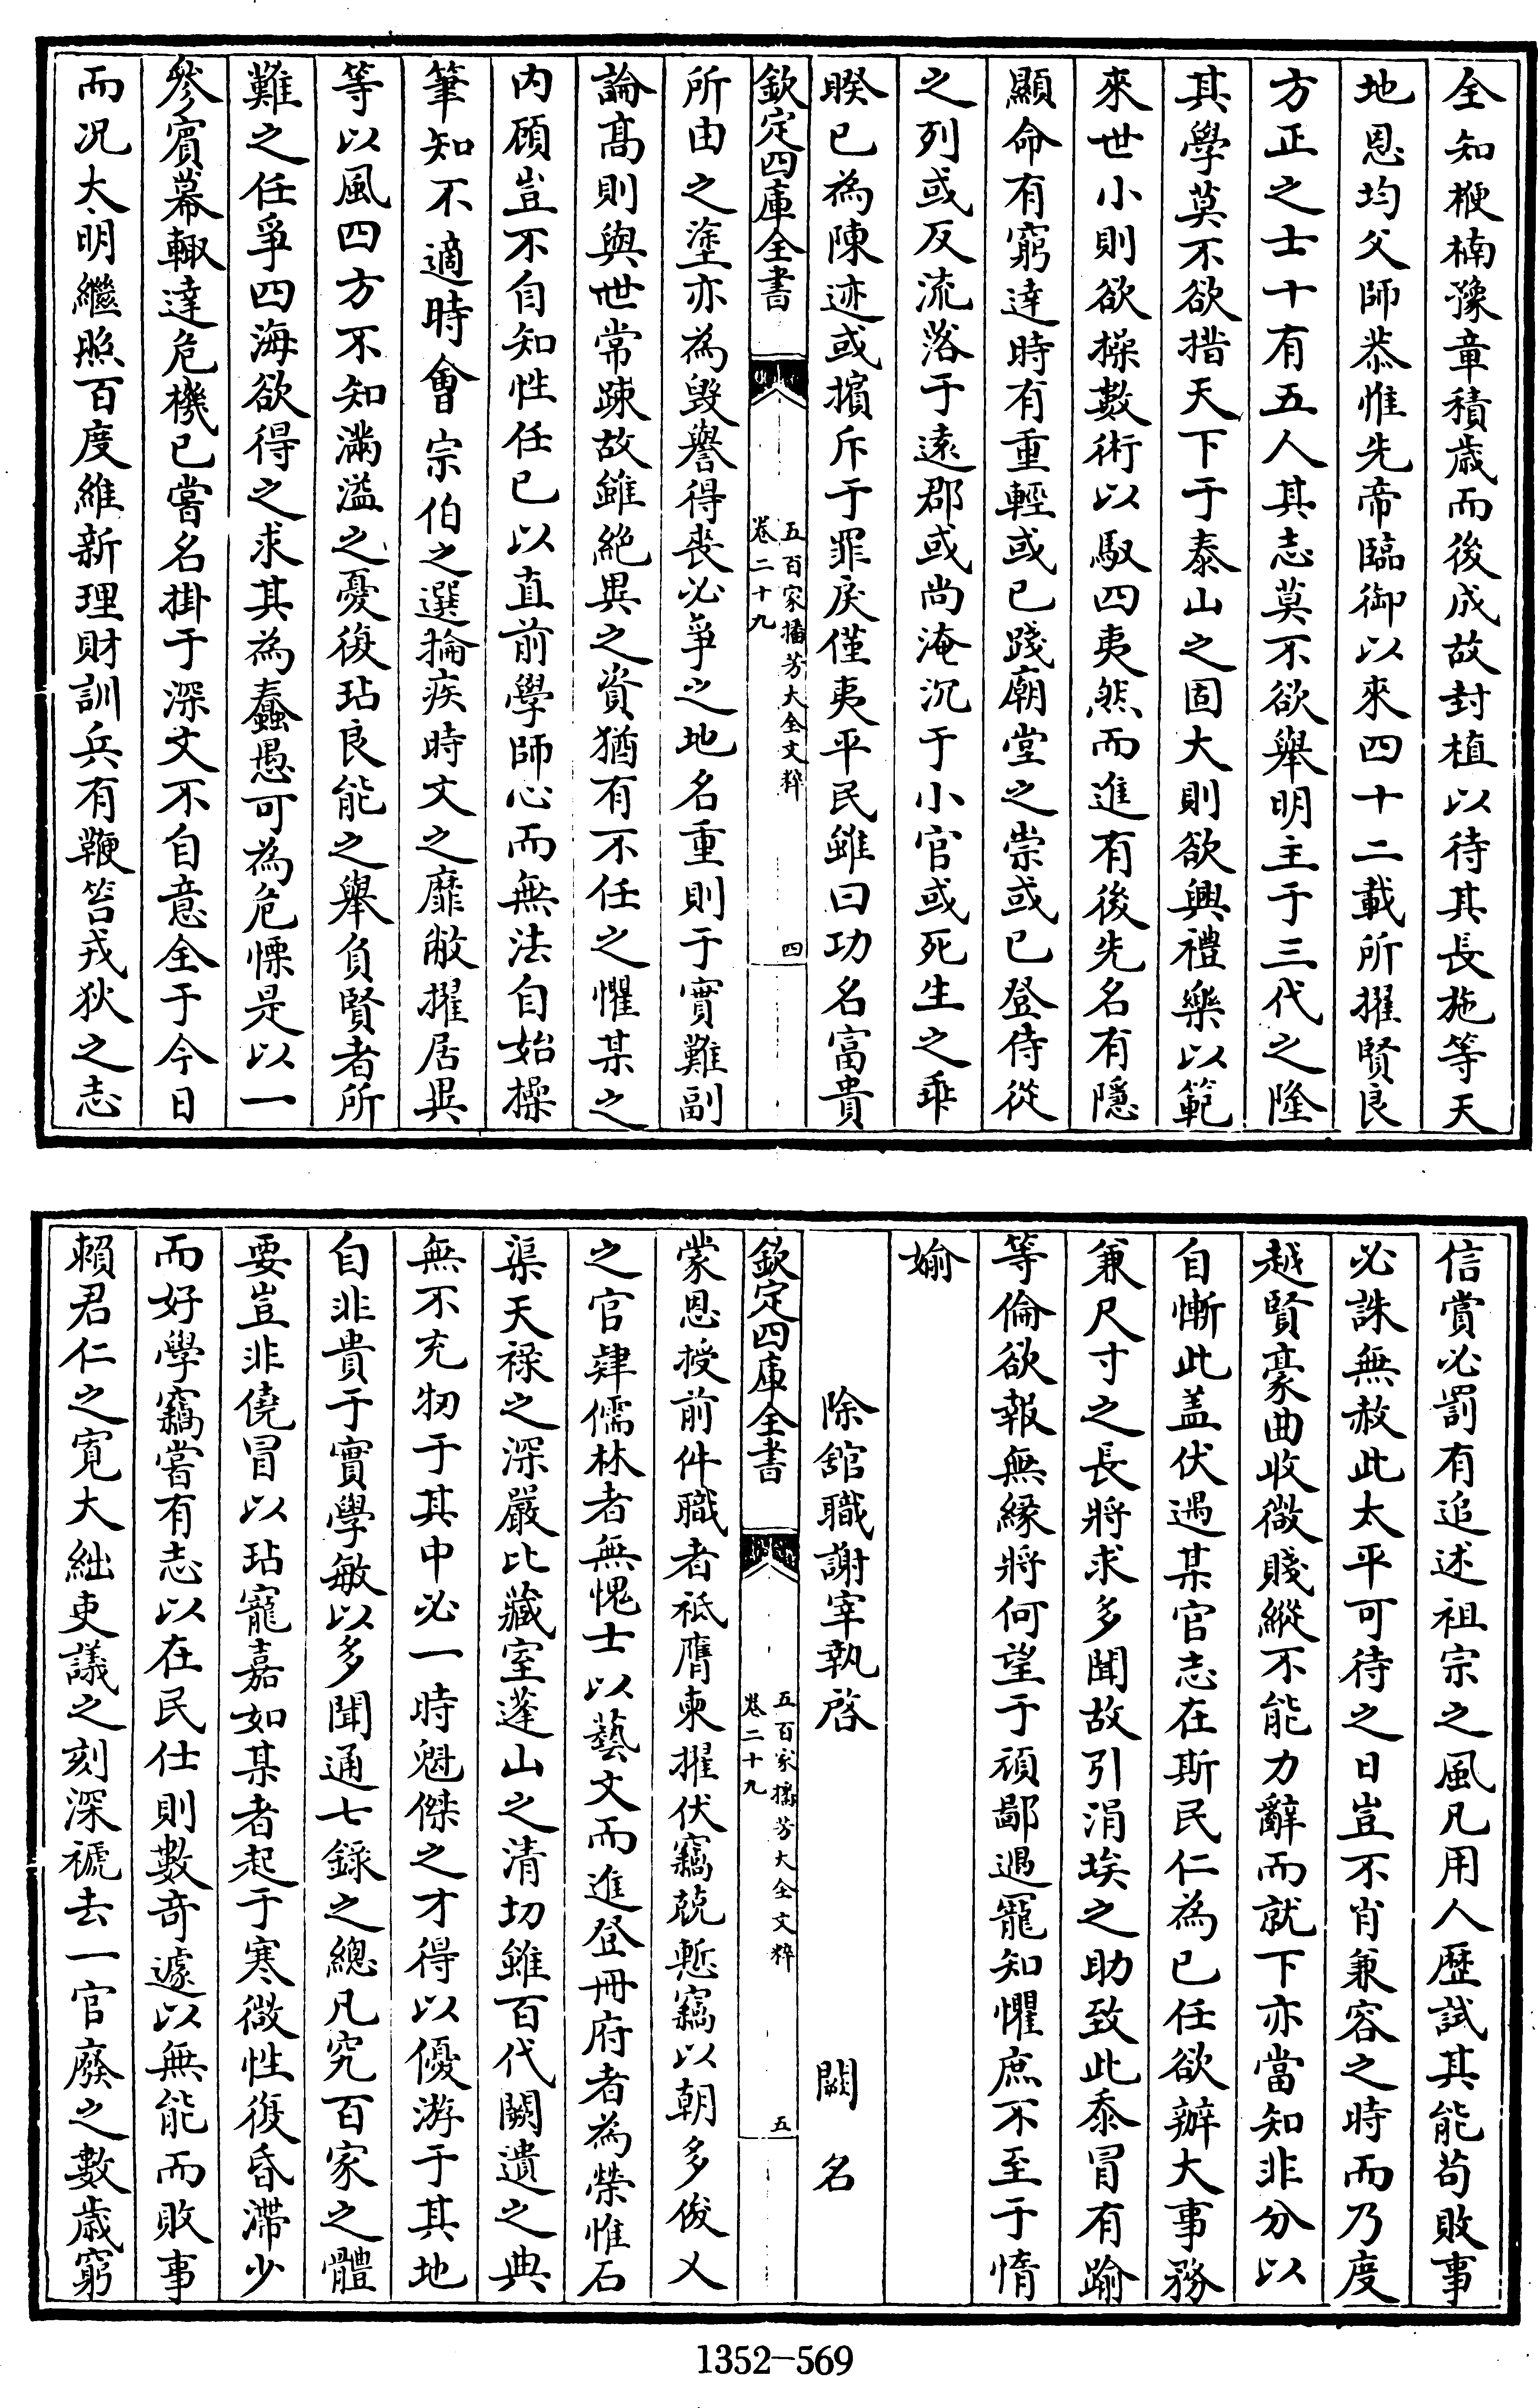 全知楩楠豫章積歲而後成故封植以待其長施等天
地恩均父師恭惟先帝臨御以來四十二載所擢賢良
方正之士十有五人其志莫不欲舉明主于三代之隆
其學莫不欲措天下于泰山之固大則欲興禮樂以範
來世小則欲操數術以馭四夷然而進有後先名有隱
顯命有窮達時有重輕或已踐廟堂之崇或已登侍從
之列或反流落于遠郡或尚淹沉于小官或死生之乖
暌已為陳迹或擯斥于罪戾僅夷平民雖曰功名富貴
欽定四庫全書
五百家播芳大全文粹
卷二十九
四
所由之塗亦為毀譽得喪必爭之地名重則于實難副
論髙則與世常踈故雖絶異之資猶有不任之懼某之
内顧豈不自知性任已以直前學師心而無法自始操
筆知不適時會宗伯之選掄疾時文之靡敝擢居異
等以風四方不知滿溢之憂復玷良能之舉負賢者所
難之任爭四海欲得之求其為蠢愚可為危慄是以一
參賓幕輙達危機已嘗名掛于深文不自意全于今日
而况大明繼照百度維新理財訓兵有鞭笞戎狄之志
信賞必罰有追述祖宗之風凡用人歴試其能苟敗事
必誅無赦此太平可待之日豈不肖兼容之時而乃度
越賢豪曲收微賤縱不能力辭而就下亦當知非分以
自慚此盖伏遇某官志在斯民仁為已任欲辦大事務
兼尺寸之長將求多聞故引涓埃之助致此忝冒有踰
等倫欲報無緣將何望于頑鄙遇寵知懼庶不至于惰
媮
除舘職謝宰執啓
闕名
欽定四庫全書
五百家播芳大全文粹
卷二十九
五
蒙恩授前件職者祗膺柬擢伏竊兢慙竊以朝多俊乂
之官肄儒林者無愧士以藝文而進登冊府者為榮惟石
渠天祿之深嚴比藏室蓬山之清切雖百代闕遺之典
無不充牣于其中必一時魁傑之才得以優游于其地
自非貴于實學敏以多聞通七錄之總凡究百家之體
要豈非僥冒以玷寵嘉如某者起于寒微性復昏滯少
而好學竊嘗有志以在民仕則數奇遽以無能而敗事
賴君仁之寛大絀吏議之刻深褫去一官廢之數歳窮